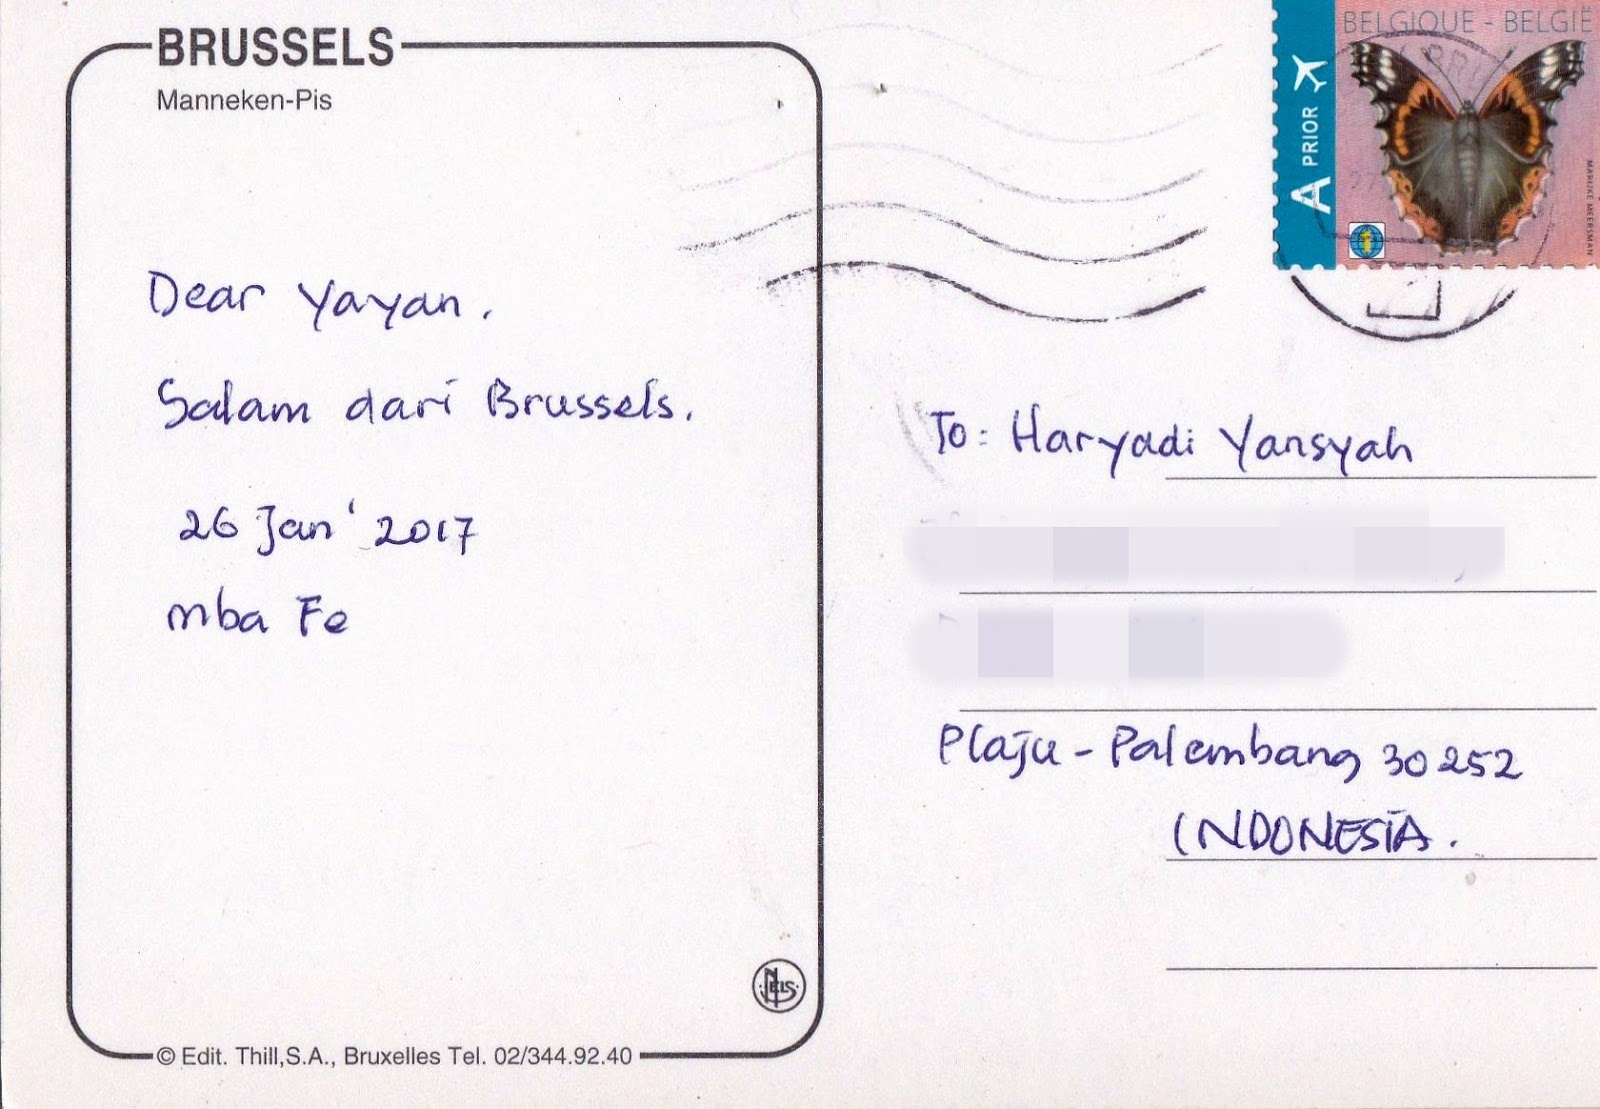 BRUSSELS
Manneken-Pis
Dear Yayan.
Salam dari Brussels.
26 Jan' 2017
mba Fe
© Edit. Thill,S.A., Bruxelles Tel. 02/344.92.40
NELS
BELGIQUE - BELGIË
A PRIOR
MARIJKE MEERSMAN
To: Haryadi Yansyah
Plaju - Palembang 30252
INDONESIA.